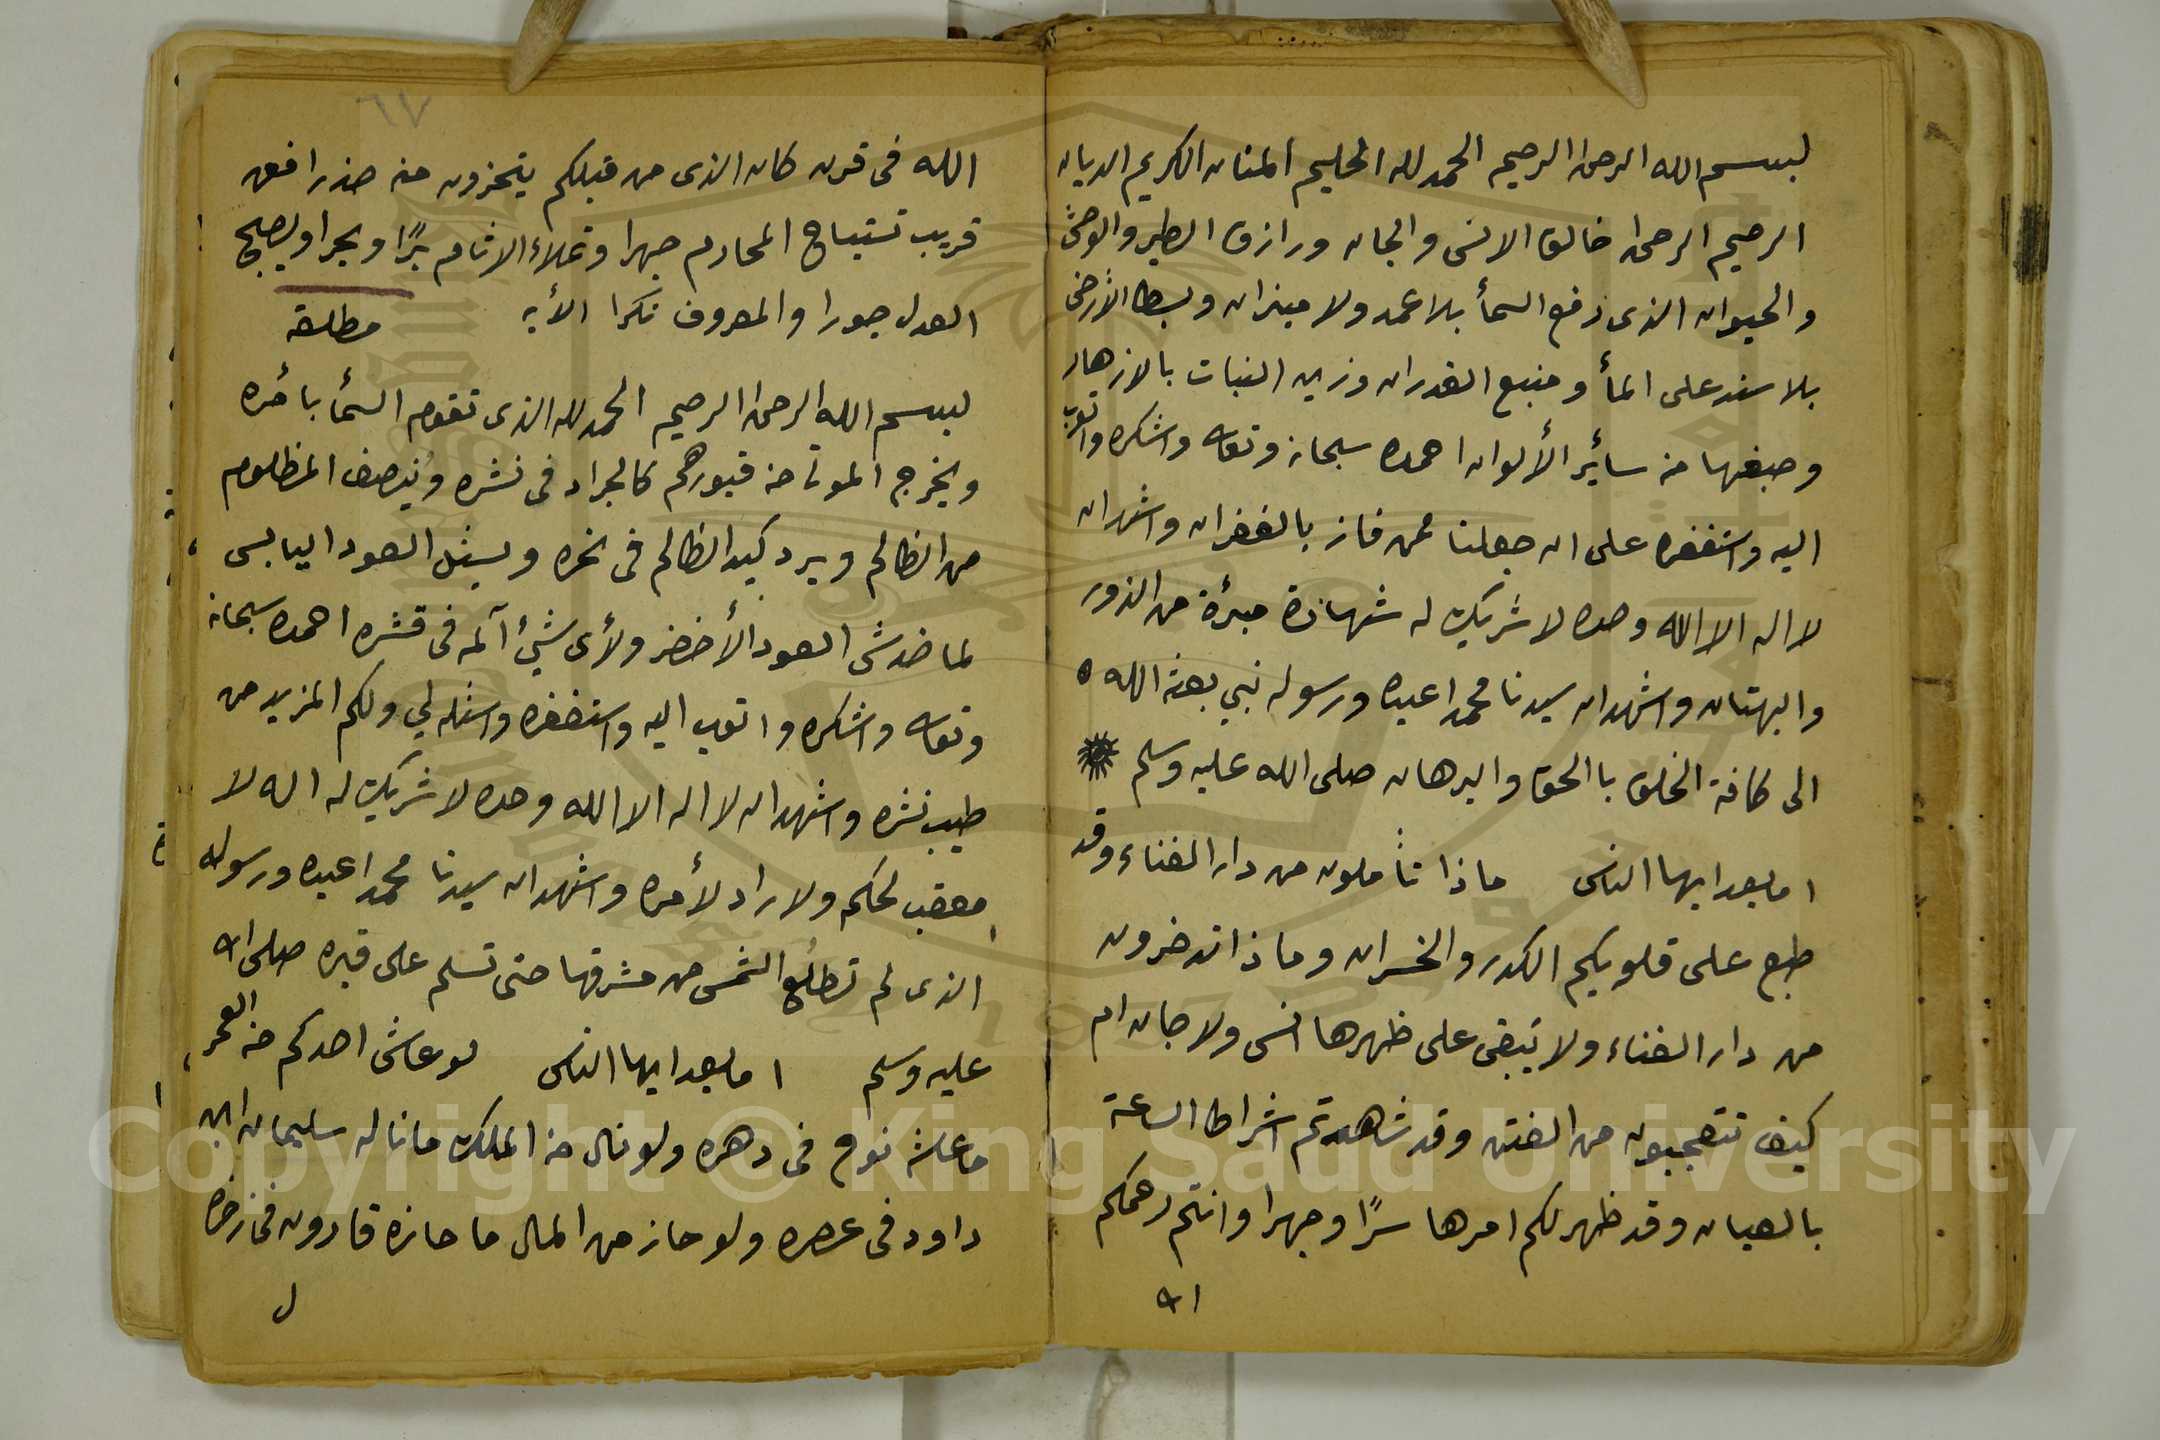 لبسم الله الرحمن الرحيم الحمد لله الحليم المنان الكريم الديان
الرحيم الرحمن خالق الانس والجان ورازق الطير والوحش
والحيوان الذى رفع السمأ بلا عمد ولا ميزان وبسط الأرض
بلا سند على المأ ومنبع الغدران وزين النبات بالازهار
وصبغها من سائر الألوان احمده سبحانه وتعالى واشكره واتوب
اليه واستغفره على ان جعلنا ممن فاز بالغفران واشهد ان
لا اله الا الله وحده لا شريك له شهادة مبرأة من الزور
والبهتان واشهد ان سيدنا محمدا عبده ورسوله نبي بعثه الله ه
الى كافة الخلق با الحق والبرهان صلى الله عليه وسلم
اما بعد ايها الناس ماذا تأملون من دار الفناء وقد
طبع على قلوبكم الكدر والخسران وماذا تدخرون
من دار الفناء ولا يبقى على ظهرها انس ولا جان ام
كيف تتعجبون من الفتن وقد شاهدتم اشراط الساعة
بالعيان وقد ظهر لكم امرها سرًا وجهرا وانتم رحمكم
الله
٦٧
الله فى قرن كان الذى من قبلكم يتحزون منه حذرا فعن
قريب تستباح المحارم جهرا وتملاء الاثام برًا وبحرا ويصبح
العدل جورا والمعروف نكرا الأيه
مطلقه
لبسم الله الرحمن الرحيم الحمد لله الذى تقوم السمأ بأمره
ويخرج الموتا من قبورهم كالجراد فى نشره ويُنصف المظلوم
من الظالم ويرد كيد الظالم فى نحره ويسئل العود اليابس
لما خدش العود الأخضر ولأى شيئ آلمه فى قشره احمده سبحانه
وتعالى واشكره واتوب اليه واستغفره واسئله لي ولكم المزيد من
طيب نشره واشهد ان لا اله الا الله وحده لا شريك له اله لا
معقب لحكمه ولا راد لأمره واشهد ان سيدنا محمدا عبده ورسوله
الذى لم تطلع الشمس من مشرقها حتى تسلم على قبره صلى الله
عليه وسلم اما بعد ايها الناس لو عاش احدكم من العمر
ما عاشه نوح فى دهره ولو نال من الملك ما ناله سليمان ابن
داود فى عصره ولو حاز من المال ما حازه قارون فى زخره
ل
Copyright © King Saud University